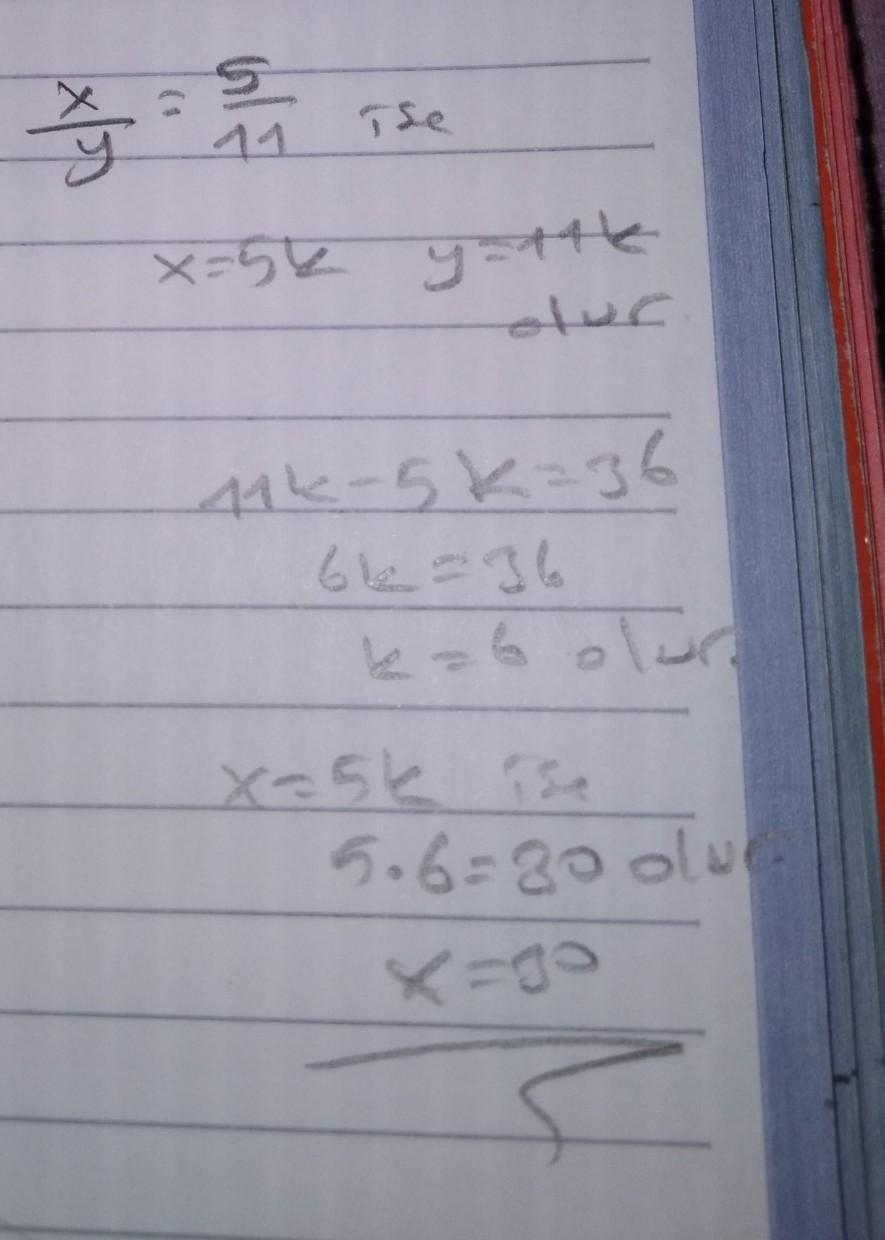 x/y = 5/11 ise
x=5k y=11k
olur
11k-5k=36
6k=36
k=6 olur.
x=5k ise
5.6=30 olur.
x=30